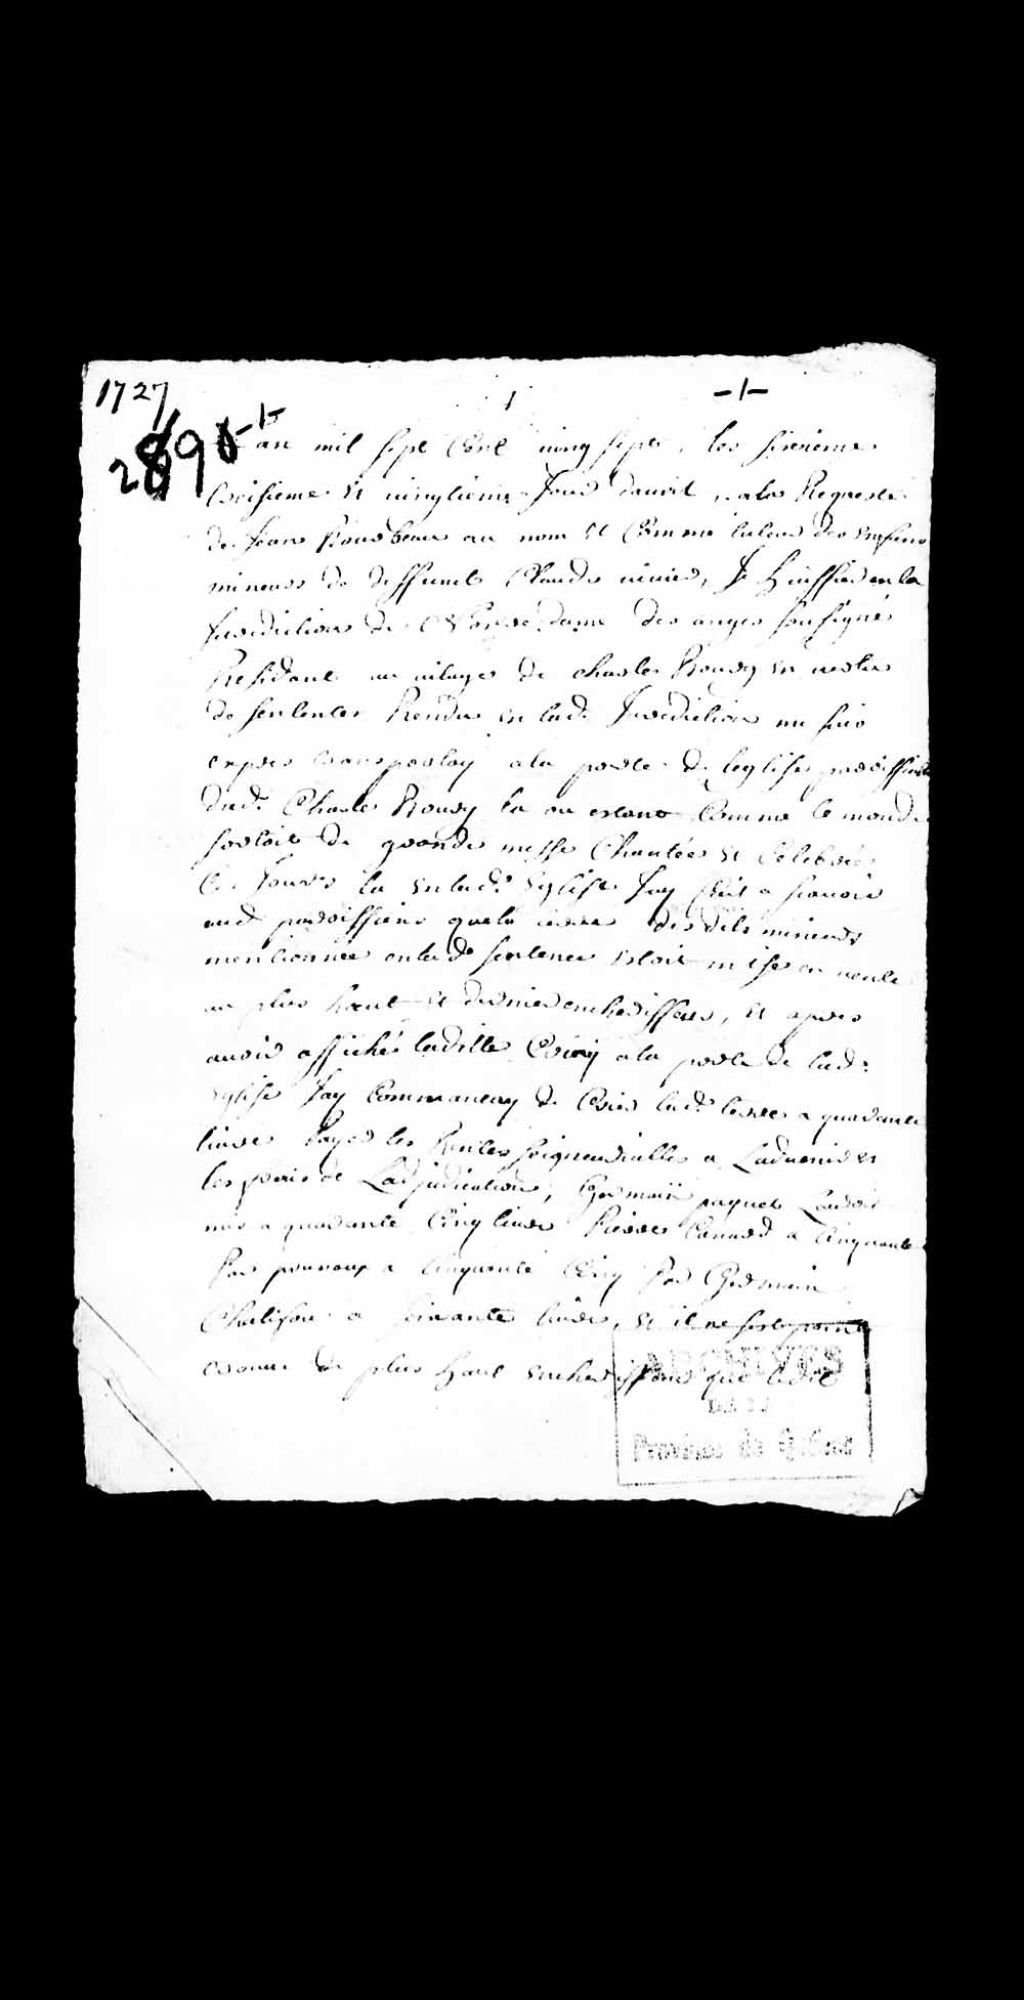 1727
1
-1-
2890-1-
Lan mil sept Cent ving sept, les sixieme
treisieme et vingtieme Jour davril, ala Requeste
de Jean Rourbeau au nom et Comme tuteur des enfans
mineurs de deffunct Claude, Je huissier en la
Jurediction de Nostre dame des anges sousigné
Residant au vilage de charles Roury en vertu
de sentence Rendue en lad. Juridiction me suis
expres transportay ala porte de leglise paroissialle
dud. Charles Roury la ou estant Comme le monde
sortoit de grande messe Chantée et Celebrée
Ce Jours la en lad. Eglise Jay fait a scavoir
aud. paroissiens que la terre desdits mineurs
mentionnée en lad. sentence estoit mise en vente
au plus haut et dernier encherisseur, et apres
avoir affiché laditte Criey ala porte de lad.
Eglise Jay Commancay de Crier lad. terre a quarente
livres payer les Rentes seigneurialles a Ladvenir et
les frais de Ladjudication, Germain paquet Lauroit
mis a quarante Cinq livres Pierre Canard a Cinquante
Par a Cinquante Cinq Par Germain
Chalifou a soixante livres, et il ne sest point
trouvé de plus haut encherisseur que ledit
ARCHIVES
DE LA
Province de Québec